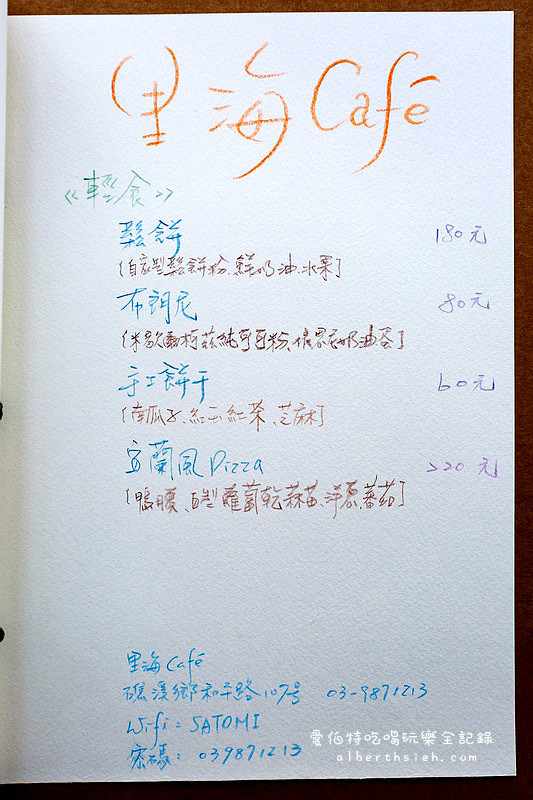 里海 Café
《輕食》
鬆餅 180元
[自家製鬆餅粉、鮮奶油、水果]
布朗尼 80元
[米歇爾柯茲純可可粉、依思尼奶油、蛋]
手工餅干 60元
[南瓜子、紅玉紅茶、芝麻]
宜蘭風Pizza 220元
[鴨腰、自製蘿蔔乾、蒜苗、洋蔥、蕃茄]
里海Café
礁溪鄉和平路107号 03-9871213
Wifi: SATOMI
密碼: 039871213
愛伯特吃喝玩樂全記錄
alberthsieh.com